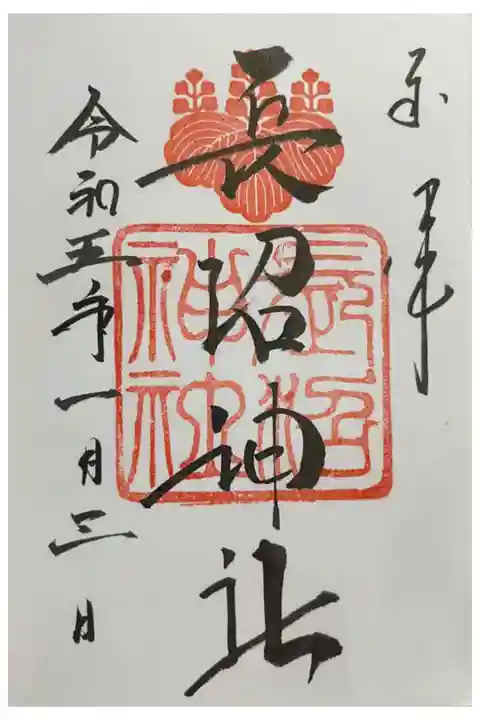 奉拝
長沼神社
長沼
神社
令和五年一月三日